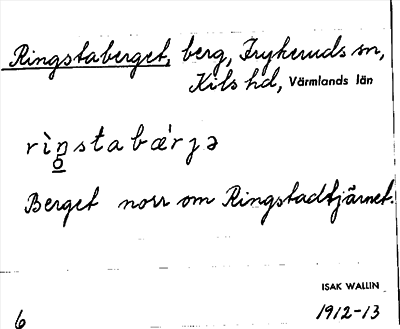 Ringstaberget, berg, Frykeruds sn,
Kils hd, Värmlands län
rìŋstabæ'rjə
o
Berget norr om Ringstadtjärnet.
ISAK WALLIN
6
1912-13